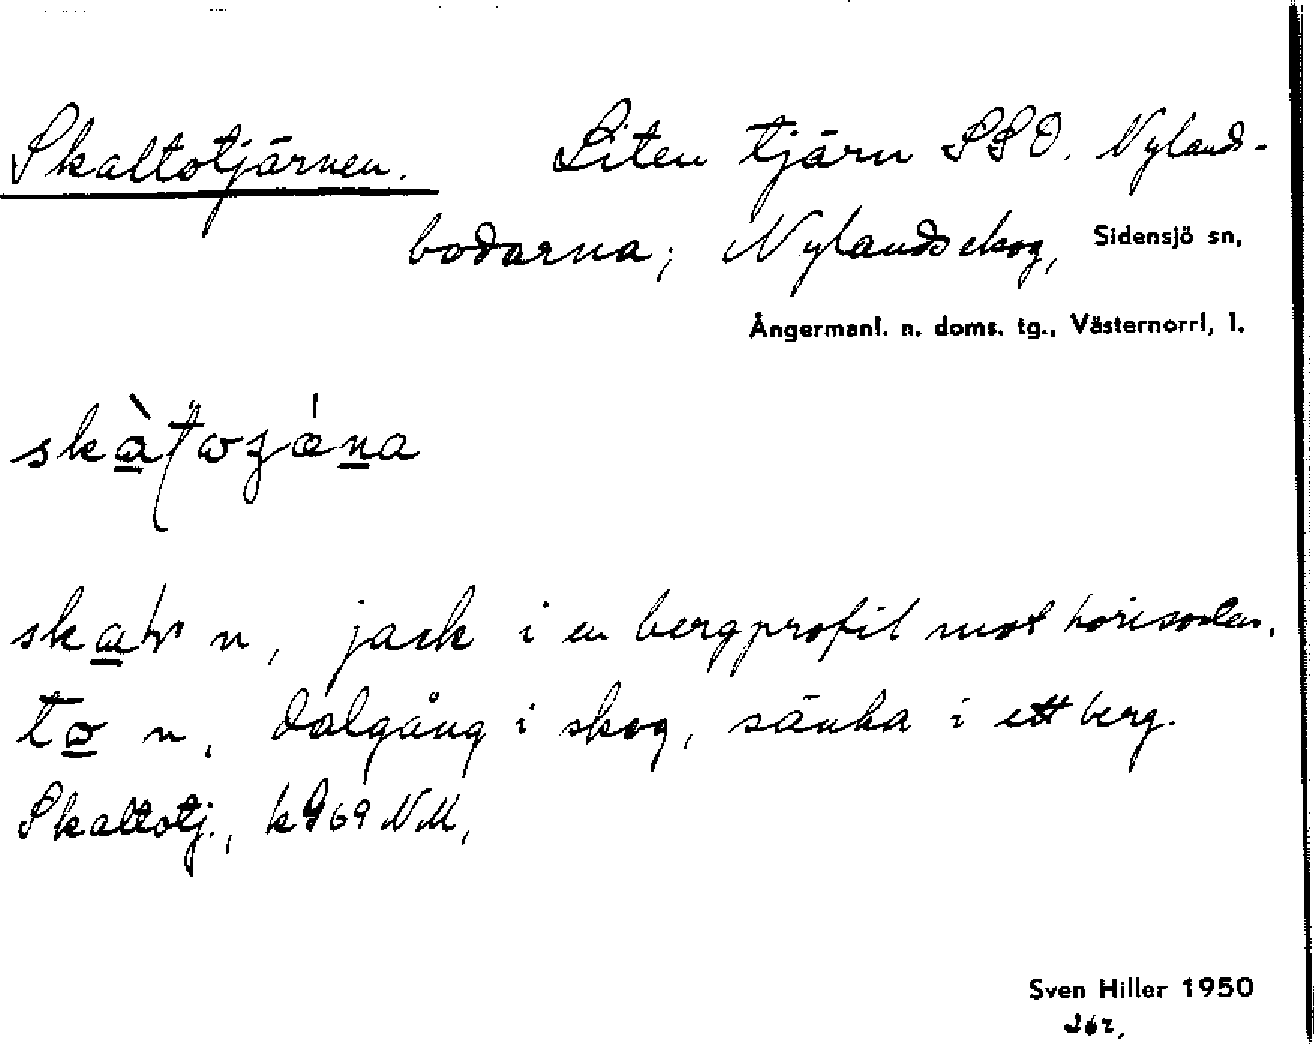 Skaltotjärnen. Liten tjärn SSO. Nyland-
bodarna; Nylandsskog, Sidensjö sn,
Ångermanl. n. doms. tg., Västernorrl, l.
n, jack i en bergprofil mot horisonten.
to n, dalgång i skog, sänka i ett berg.
Skaltotj., k969 NM,
Sven Hiller 1950